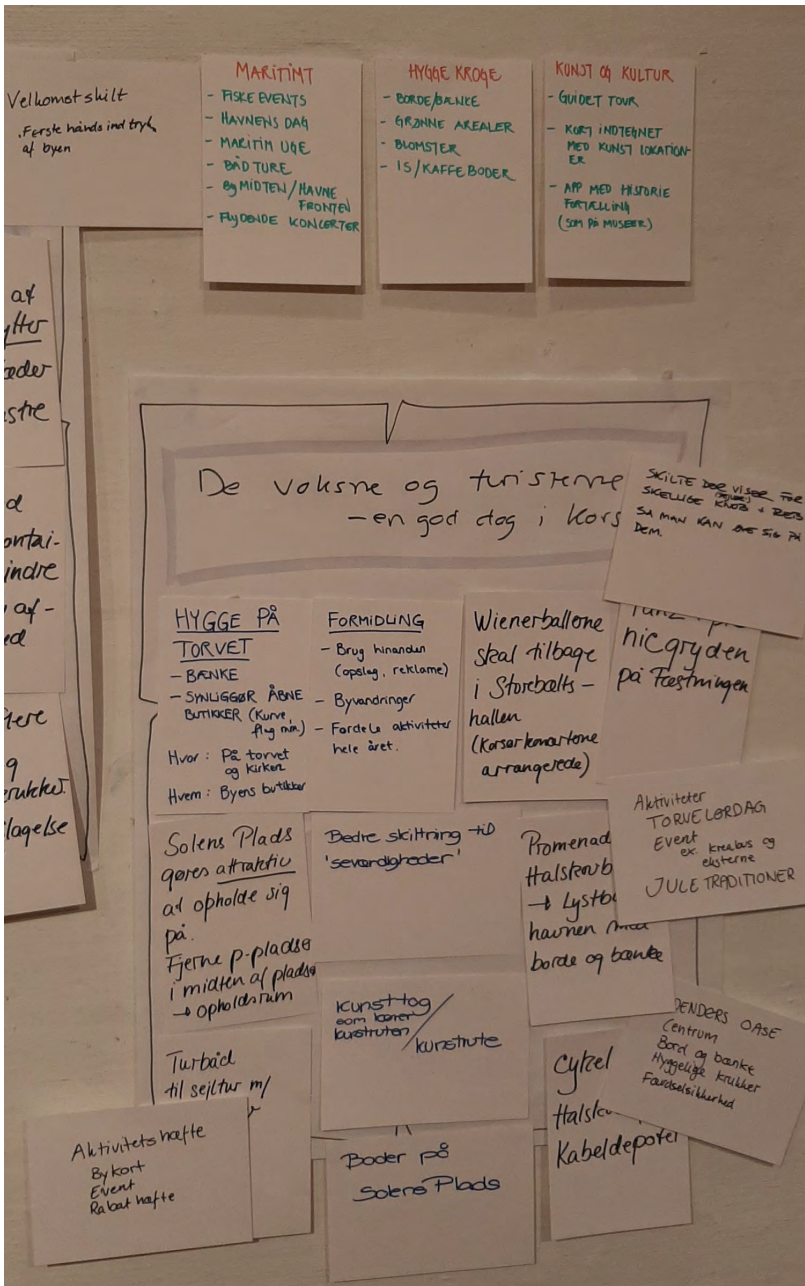 Velkomstskilt
. Første hånds indtryk
af byen
MARITIMT
- FISKE EVENTS
- HAVNENS DAG
- MARITIM UGE
- BÅD TURE
- BYMIDTEN/HAVNE
FRONTEN
- FLYDENDE KONCERTER
HYGGE KROGE
- BORDE/BÆNKE
- GRØNNE AREALER
- BLOMSTER
- IS/KAFFE BODER
KUNST OG KULTUR
- GUIDET TOUR
- KORT INDTEGNET
MED KUNST LOKATION-
ER
- APP MED HISTORIE
FORTÆLLING
(SOM PÅ MUSEER)
af
ytter
æder
stre
d
ontai-
indre
af-
ed
tere
g
rukker.
lagelse
De voksne og turisterne
- en god dag i Kors
SKILTE DER VISER FOR
SKELLIGE
SÅ MAN KAN SIG PÅ
DEM.
HYGGE PÅ
TORVET
- BÆNKE
- SYNLIGGØR ÅBNE
BUTIKKER (Kurve,
flag mm.)
Hvor: På torvet
og kirken
Hvem: Byens butikker
FORMIDLING
- Brug hinanden
(opslag, reklame)
- Byvandringer
- Fordele aktiviteter
hele året.
Wienerballone
skal tilbage
i Storebælts-
hallen
(Korsørkonvortone
arrangerede)
nicgryden
på Fæstningen
Aktiviteter
TORVELØRDAG
Event
ex. kreabus og
eksterne
JULE TRADITIONER
Solens Plads
gøres attraktiv
at opholde sig
på.
Fjerne p-pladse
i midten af pladse
→ opholdsrum
Bedre skiltning til
'seværdigheder'
Promenad
Halskovb
→ Lystb
havnen med
borde og bænke
Kunsttog
som kører
kunstruten /
kunstrute
ENDERS OASE
Centrum
Bord og bænke
Hyggelige krukker
Færdselsikkerhed
Turbåd
til sejltur m/
Cykel
Halsko
Kabeldepotet
Aktivitetshæfte
Bykort
Event
Rabat hæfte
Boder på
Solens Plads